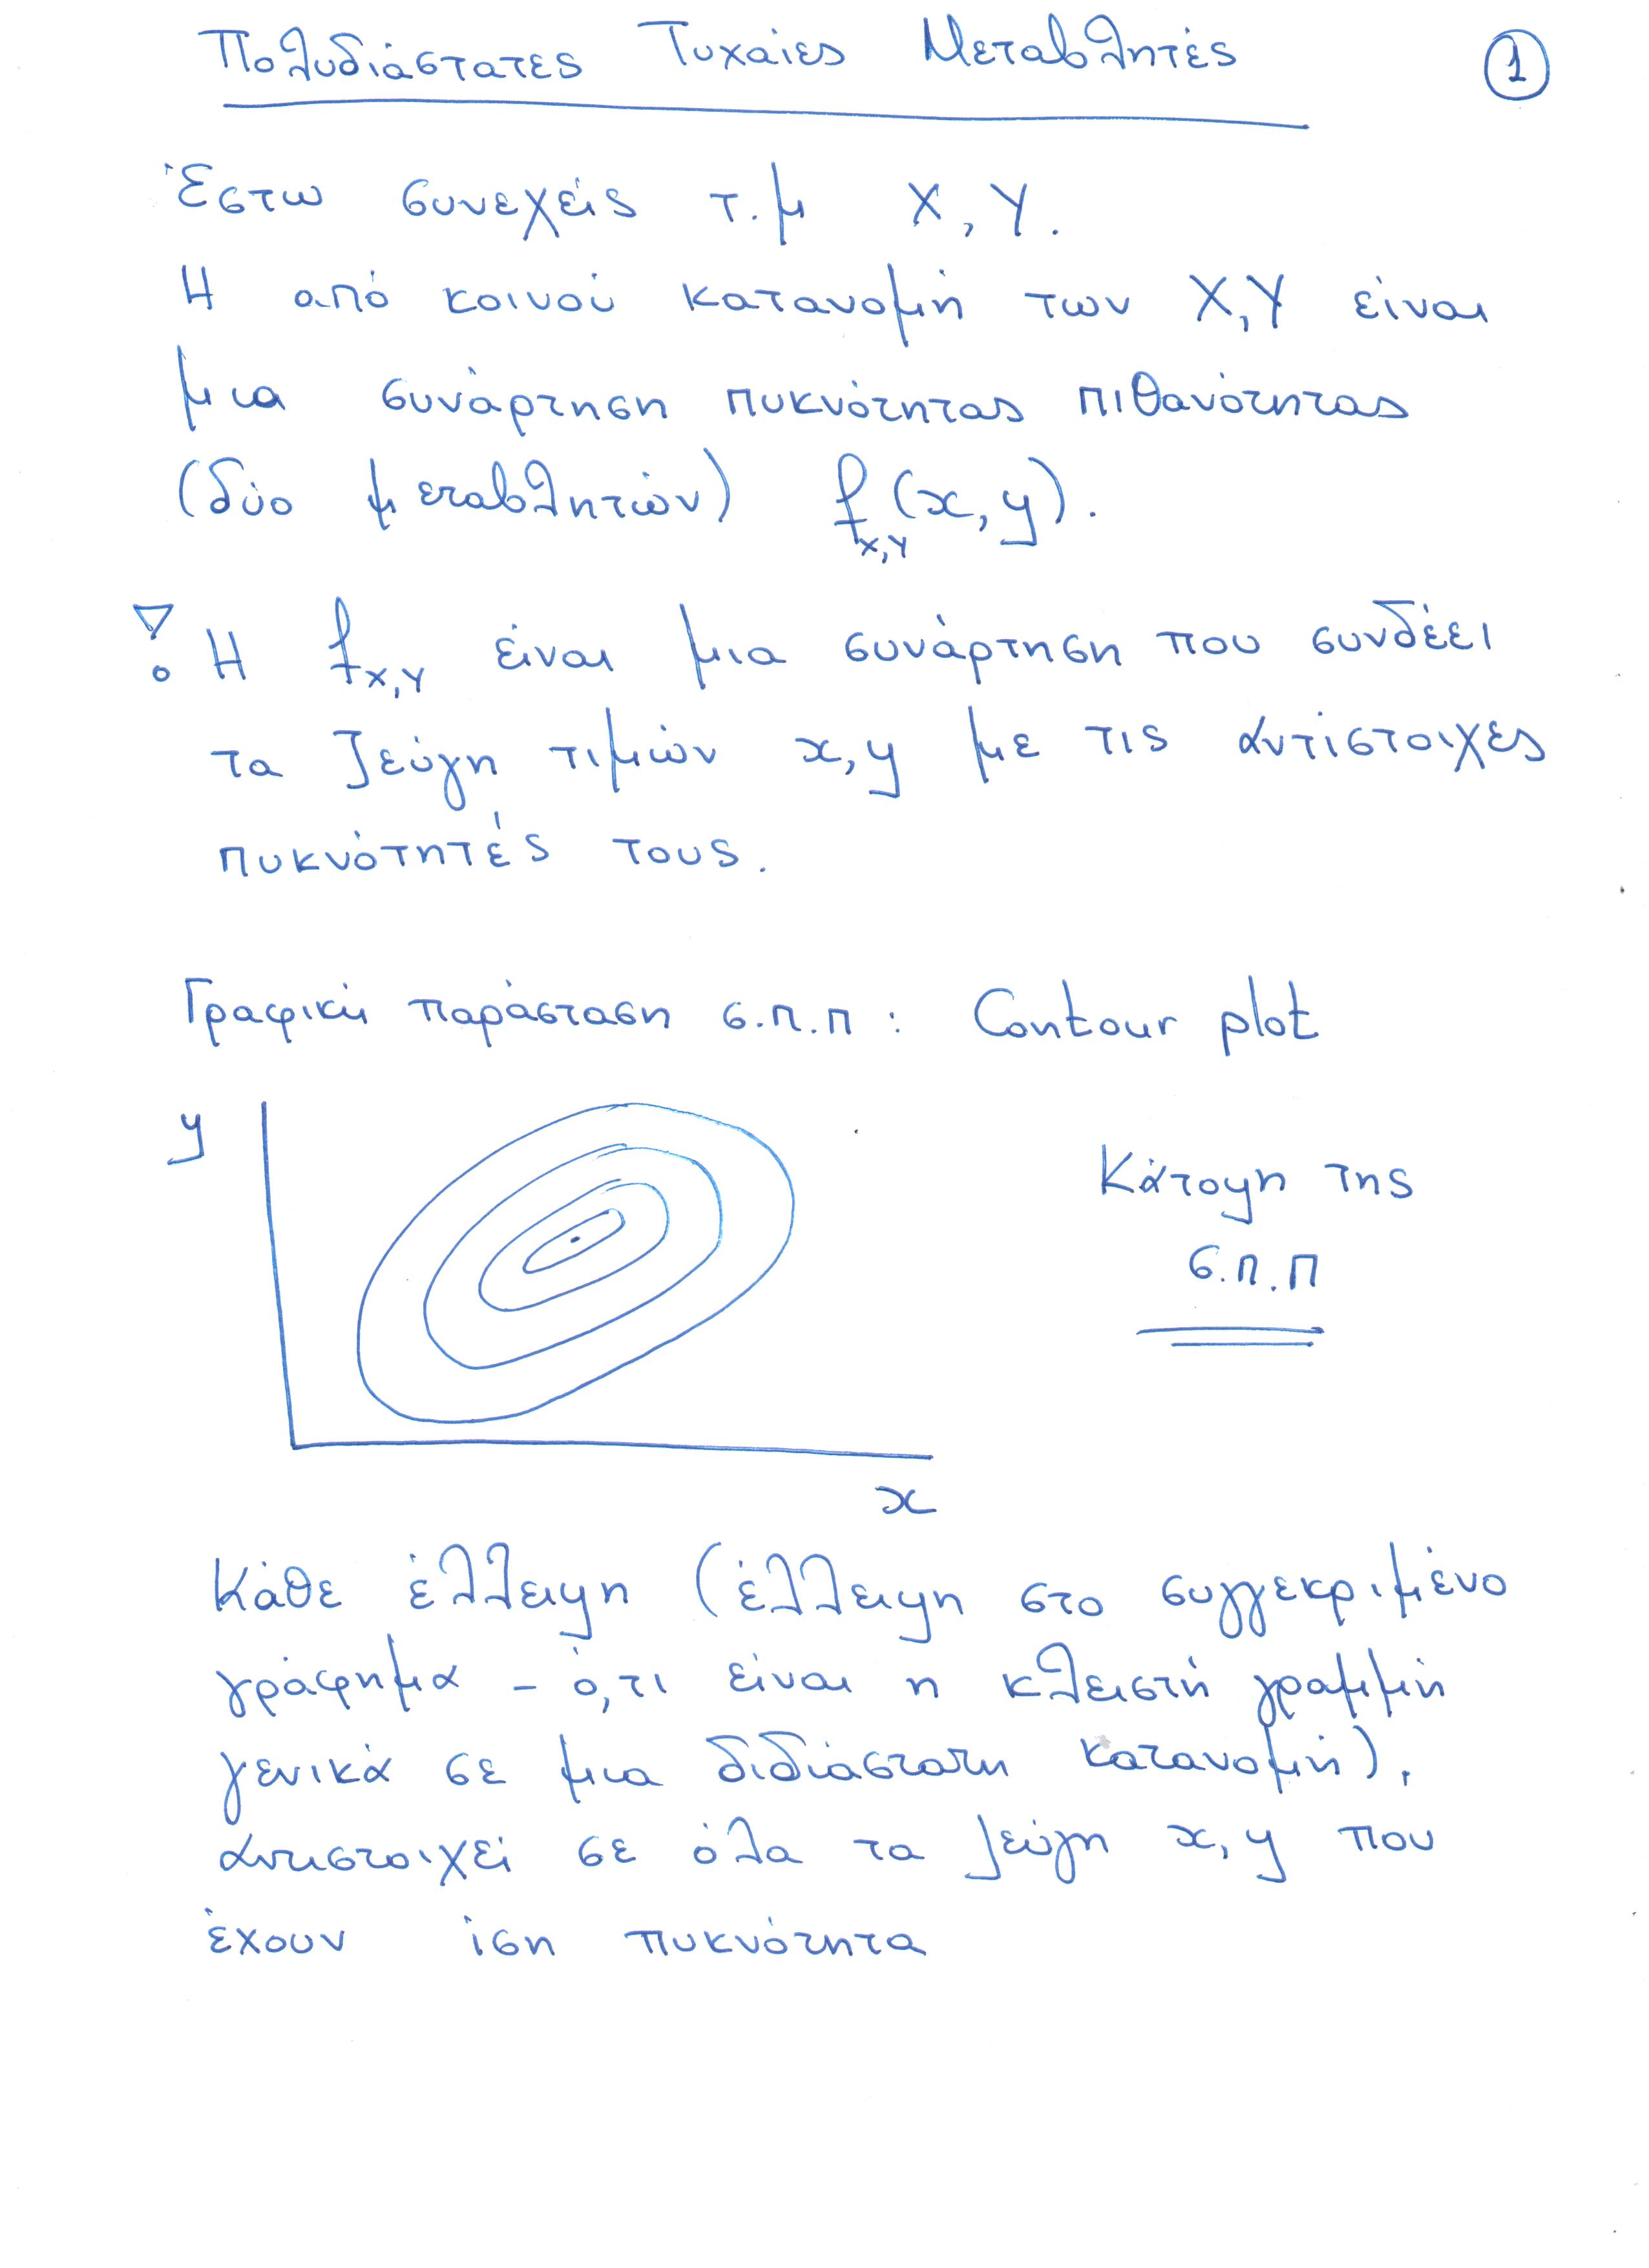 Πολυδιάστατες Τυχαίες Μεταβλητές
1
Έστω συνεχείς τ.μ X, Y.
Η από κοινού κατανομή των X, Y είναι
μια συνάρτηση πυκνότητας πιθανότητας
(δύο μεταβλητών) f_{X,Y}(x, y).
! Η f_{X,Y} είναι μια συνάρτηση που συνδέει
τα ζεύγη τιμών x, y με τις αντίστοιχες
πυκνότητές τους.
Γραφική παράσταση σ.π.π : Contour plot
y
Κάτοψη της
σ.π.π
x
Κάθε έλλειψη (έλλειψη στο συγγεκριμένο
γράφημα - ό,τι είναι η κλειστή γραμμή
γενικά σε μια διδιάστατη κατανομή),
αντιστοιχεί σε όλα τα ζεύγη x, y που
έχουν ίση πυκνότητα